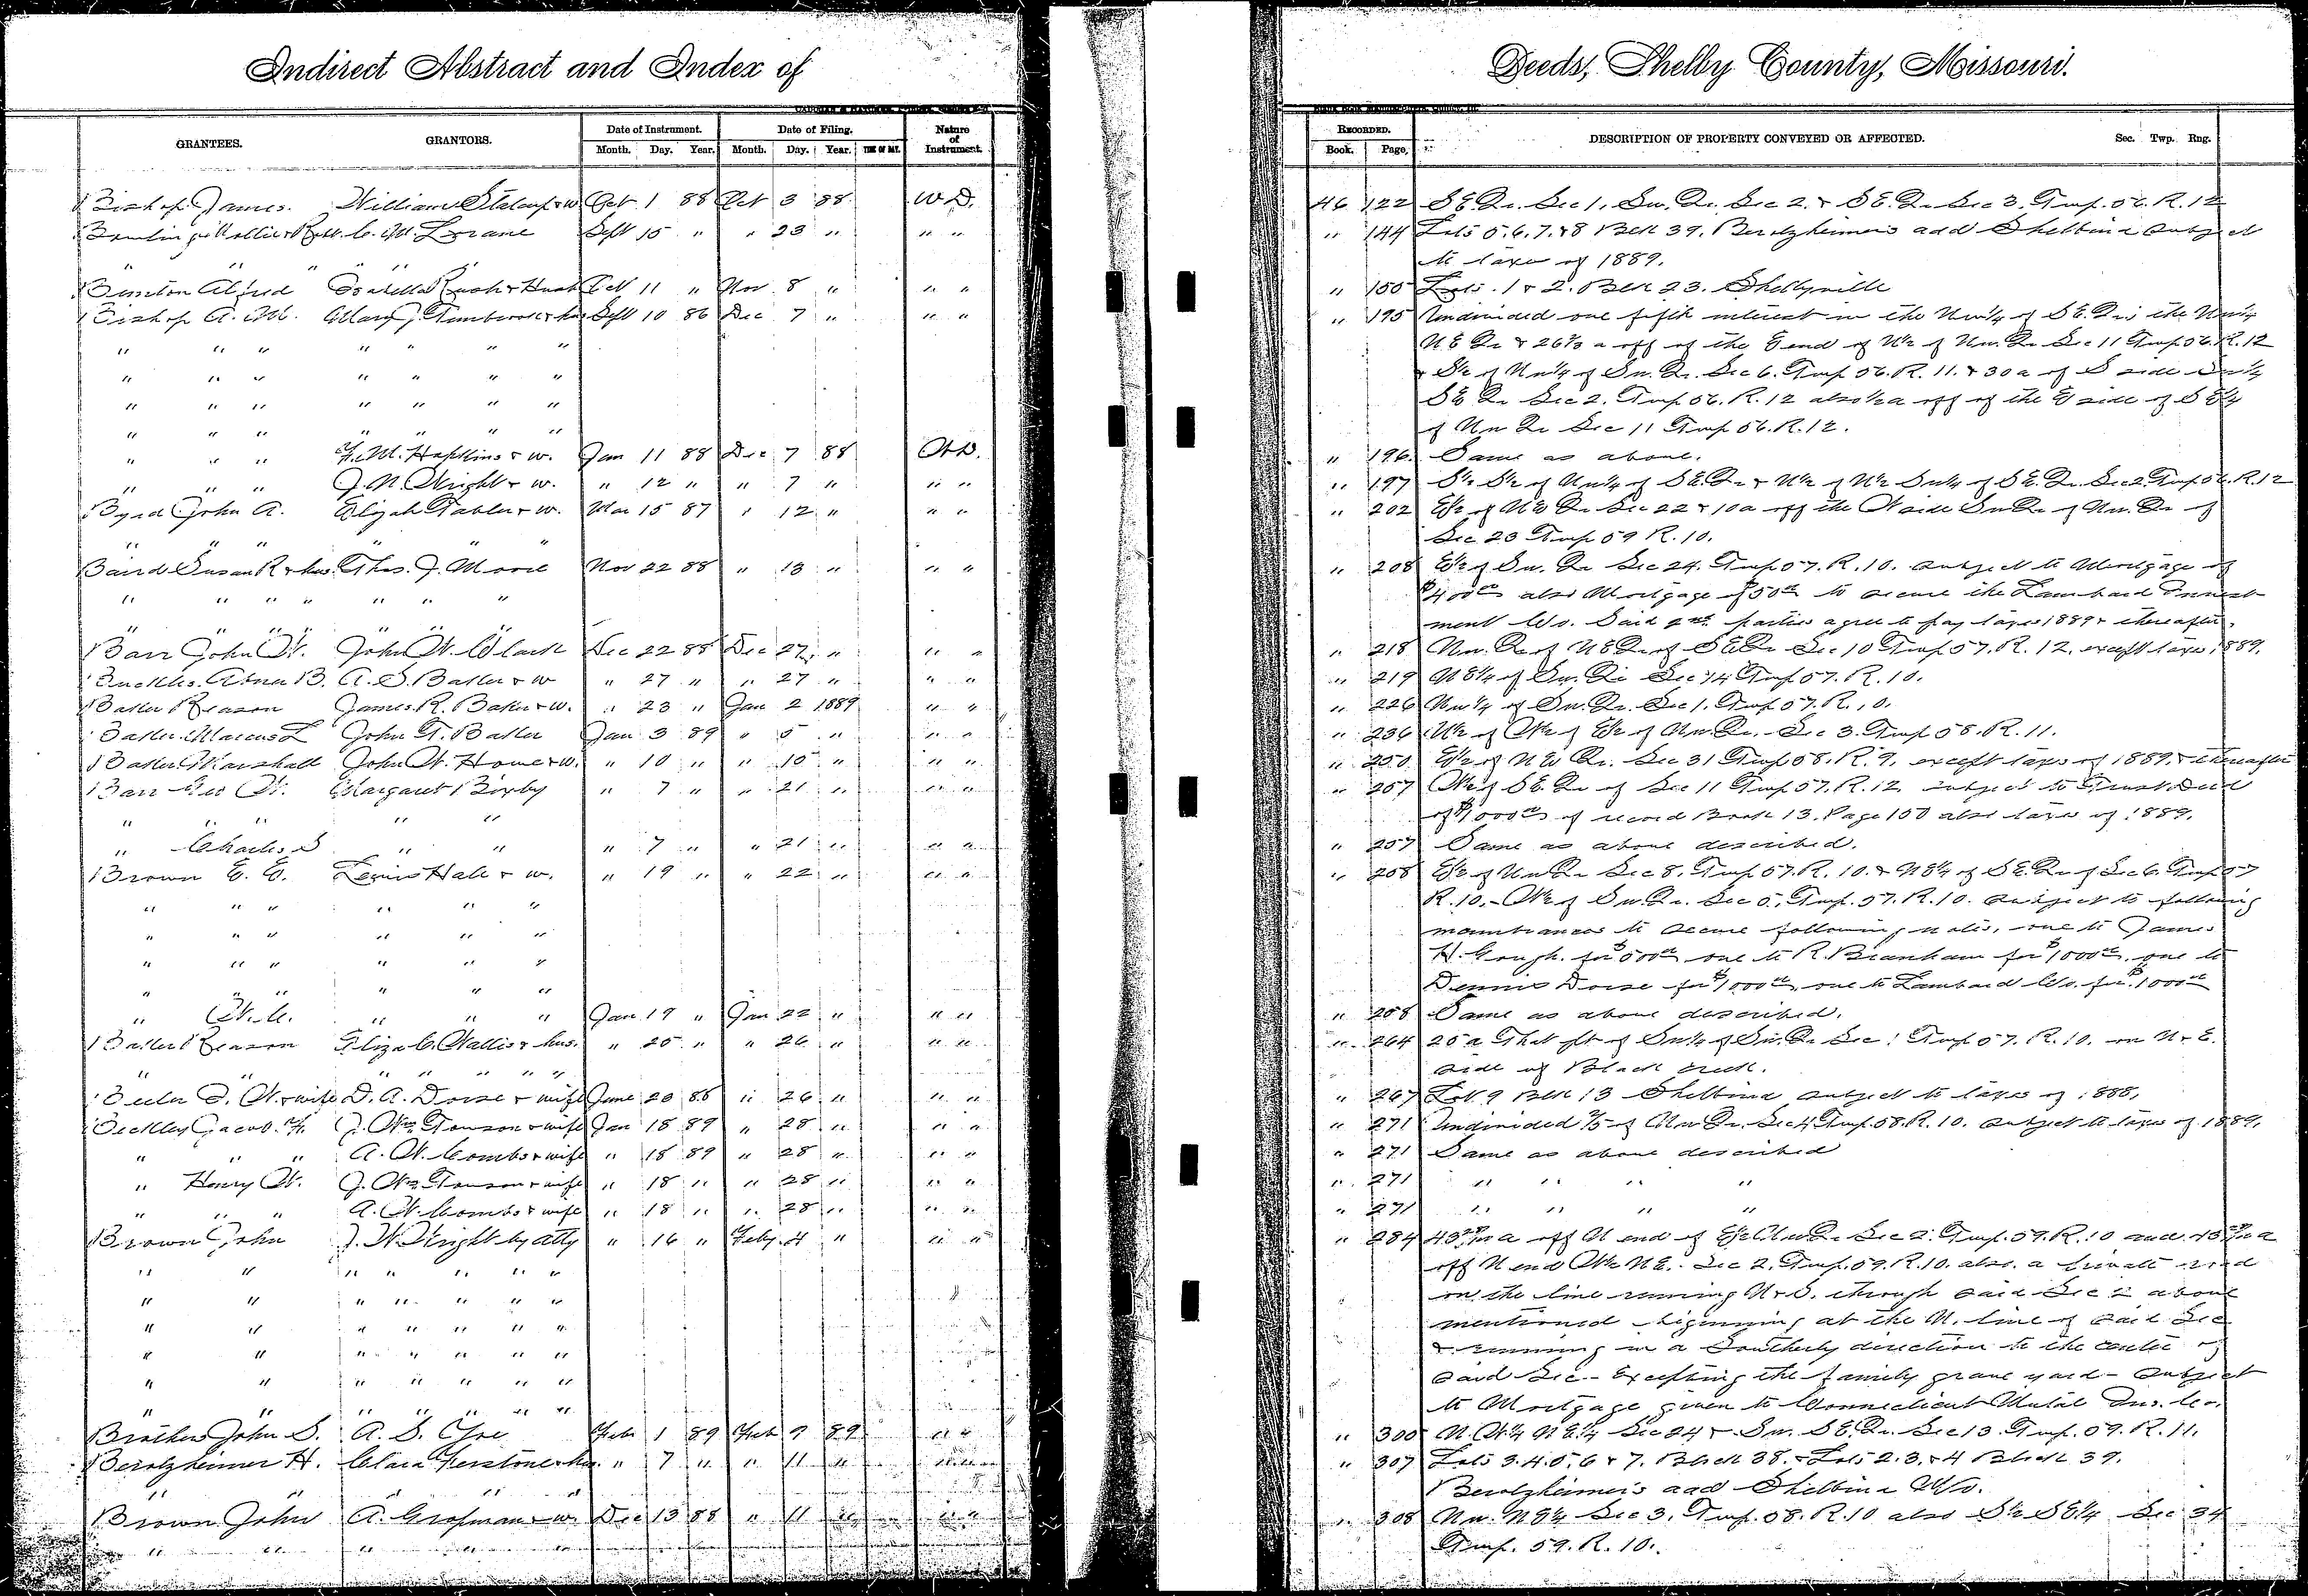 Indirect Abstract and Index of
Deeds, Shelby County, Missouri.
GRANTEES. GRANTORS. Date of Instrument. Date of Filing. Nature of Instrument.
Month. Day. Year. Month. Day. Year. TIME OF DAY.
RECORDED. DESCRIPTION OF PROPERTY CONVEYED OR AFFECTED. Sec. Twp. Rng.
Book. Page.
Bishop James. William Stalcup & w Oct 1 88 Oct 3 88 W D. 46 122 S E. Qr. Sec 1, Sw. Qr. Sec 2. & S E. Qr Sec 3. Twp. 56. R. 12
C. M. Lorane Sept 15 " " 23 " " " " 144 Lots 5. 6. 7. & 8 Blk 39. Berolzheimer's add Shelbina subject
" " " " " to taxes of 1889.
Alfred & Husb Oct 11 " Nov. 8 " " " " 150 Lots. 1 & 2. Blk 23. Shelbyville
Bishop A. M. Mary J. Sept 10 86 Dec 7 " " " " 195 Undivided one fifth interest in the Nw¼ of S E. Qr; the Nw¼
" " " " " " " N E Qr & 26⅔ a off of the E end of N½ of Nw. Qr Sec 11 Twp 56. R. 12
" " " " " " " & S½ of Nw¼ of Sw. Qr. Sec 6. Twp 56. R. 11. & 30 a of S side Sw¼
" " " " " " " S E Qr Sec 2. Twp 56. R. 12 also ½ a off of the E side of S E¼
" " " " " " " of Nw Qr Sec 11 Twp 56. R. 12.
" " " F. M. Hopkins & w. Jan 11 88 Dec 7 88 W D. " 196. Same as above.
" " " J. M. Wright & w. " 12 " " 7 " " " " 197 S½ S½ of Nw¼ of S E. Qr & N½ of N½ Sw¼ of S E. Qr. Sec 2. Twp 56. R. 12
Byrd John A. Elijah & w. Mar 15 87 " 12 " " " " 202 E½ of N E Qr Sec 22 & 10 a off the W side Sw Qr of Nw. Qr of
" " " " " " Sec 23 Twp 59 R. 10.
Baird Susan R & hus. Thos. J. Moore Nov 22 88 " 13 " " " " 208 E½ of Sw. Qr Sec 24. Twp 57. R. 10. subject to Mortgage of
" " " " " " " $400 also Mortgage of $50 to secure the Lombard Invest
" " " " " " " ment Co. Said 2nd parties agree to pay taxes 1889 & thereafter.
Barr John W. John W. Clark Dec 22 88 Dec 27. " " " " 218 Nw. Qr of N E Qr of S E Qr Sec 10 Twp 57. R. 12. except taxes 1889.
Buckles. Abner B. A. S. Baker & w " 27 " " 27 " " " " 219 N E¼ of Sw. Qr Sec 14 Twp 57. R. 10.
Baker Reason James. R. Baker & w. " 23 " Jan 2 1889 " " " 226 Nw¼ of Sw. Qr. Sec 1. Twp 57. R. 10.
Baker. Marcus L John T. Baker Jan 3 89 " 5 " " " " 236 W½ of W½ of E½ of Nw. Qr. Sec 3. Twp 58. R. 11.
Baker Marshall John W. Howe & w. " 10 " " 15 " " " " 250 E½ of N E Qr. Sec 31 Twp 58. R. 9. except taxes of 1889. & thereafter
Barr Geo W. Margaret Bixby " 7 " " 21 " " " " 257 W½ of S E. Qr of Sec 11 Twp 57. R. 12 subject to Trust Deed
" " " " " of $1000 of record Book 13. Page 150 also taxes of 1889.
" Charles S " " " 7 " " 21 " " " " 257 Same as above described.
Brown E. E. Lewis Hale & w. " 19 " " 22 " " " " 258 E½ of Nw Qr Sec 8. Twp 57. R. 10. & N E¼ of S E. Qr of Sec 6. Twp 57
" " " " " " R. 10. W½ of Sw. Qr. Sec 5. Twp. 57. R. 10. subject to following
" " " " " " incumbrances to secure following notes, one to James
" " " " " " H. Gough. for $500 one to R. Branham for $1000. one to
" " " " " " Dennis Dorse for $1000 one to Lombard Co. for $1000
" W. C. " " " Jan 19 " Jan 22 " " " " 258 Same as above described.
Baker Reason Eliza C. Wallis & hus. " 25 " " 26 " " " " 264 25 a That pt of Sw¼ of Sw. Qr Sec 1 Twp 57. R. 10. on N & E.
" " " " " " side of Black creek.
& wife D. A. Dorse & wife June 20 88 " 26 " " " " 267 Lot 9 Blk 13 Shelbina subject to taxes of 1888.
Jacob. J. Wm Towson & wife Jan 18 89 " 28 " " " " 271 Undivided ⅖ of Nw Qr. Sec 4 Twp. 58. R. 10. subject to taxes of 1889.
" " " A. W. Combs & wife " 18 89 " 28 " " " " 271 Same as above described
" Henry W. J. Wm Towson & wife " 18 " " 28 " " " " 271 " " " "
" " " A. W. Combs & wife " 18 " " 28 " " " " 271 " " " "
Brown John J. W. Wright by atty " 16 " Feby. 4 " " " " 284 a off N end of E½ Nw Qr Sec 2. Twp. 59. R. 10 and a
" " " " " " " off N end W½ N E. Sec 2. Twp. 59. R. 10. also a private road
" " " " " " " on the line running N & S. through said Sec 2 above
" " " " " " " mentioned beginning at the N. line of said Sec
" " " " " " " & running in a Southerly direction to the center of
" " " " " " " said Sec - Excepting the family grave yard - subject
" " " " " " " to Mortgage given to Connecticut Mutal Ins. Co.
Brothers John S. A. S. Feb 1 89 Feb 9 89 " " " 300 N. W¼ N E¼ Sec 24 & Sw. S E. Qr. Sec 13. Twp. 59. R. 11.
Berolzheimer H. Clara Gerstone & hus. " 7 " " 11 " " " " 307 Lots 3. 4. 5. 6 & 7. Block 38. & Lots 2. 3. & 4 Block 39.
" " " " Berolzheimer's add Shelbina Mo.
Brown John A. Grossman & w. Dec 13 88 " 11 " " " " 308 Nw. N E¼ Sec 3. Twp. 58. R. 10 also S½ S E¼ Sec 34
" " " " " Twp. 59. R. 10.